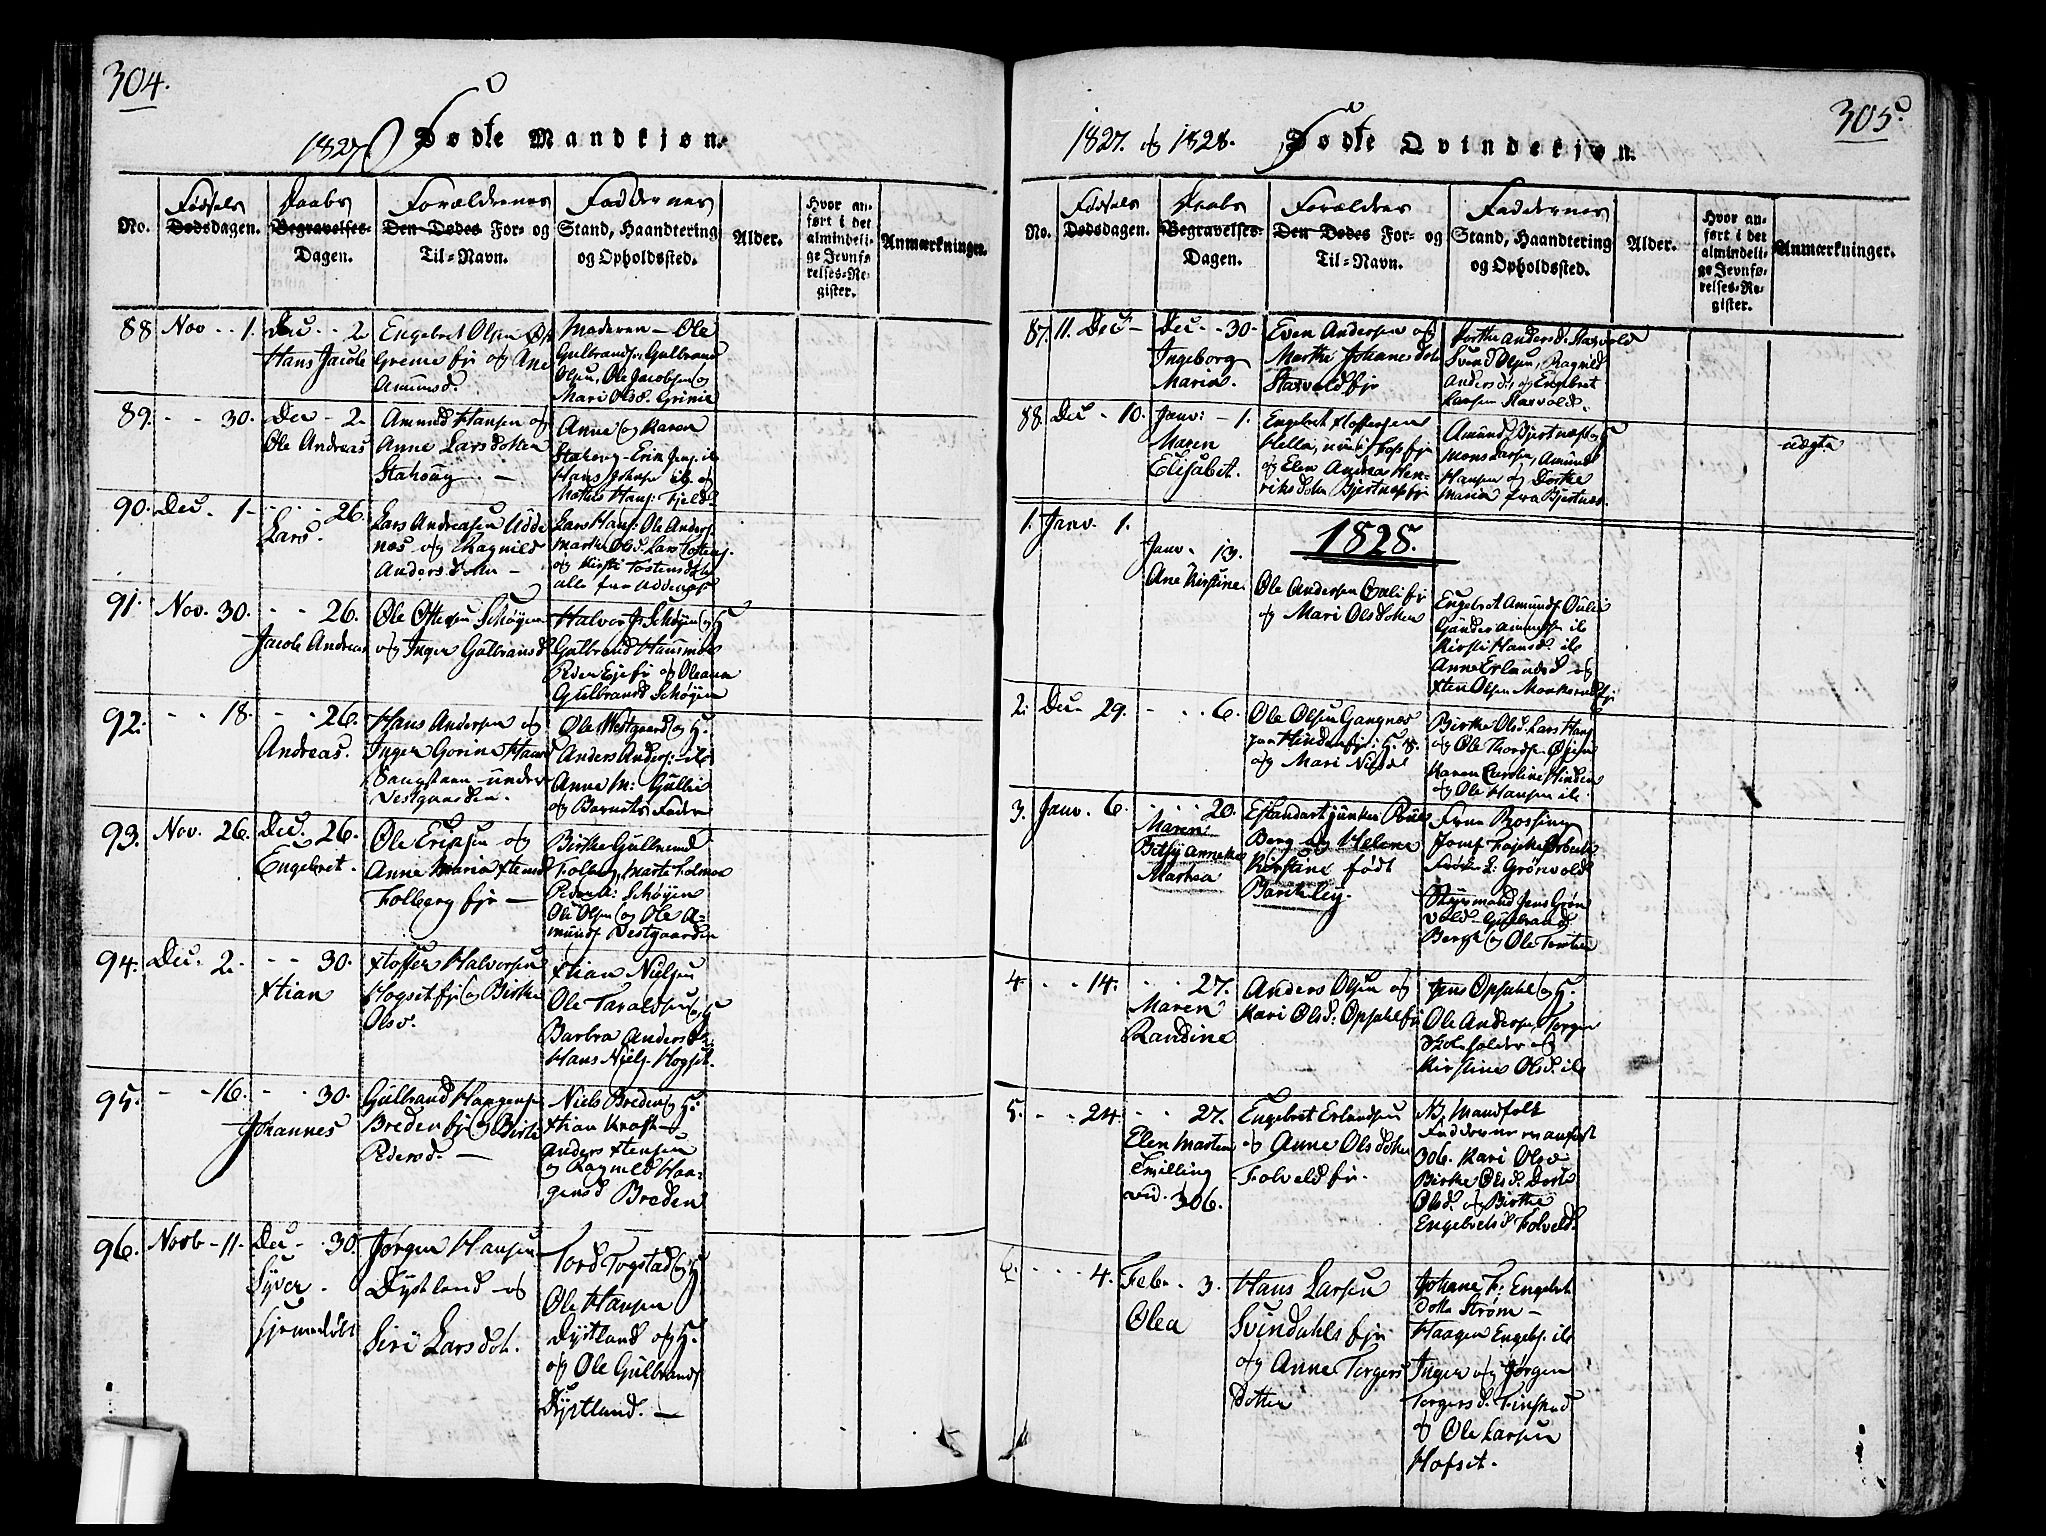 304.
1827. Fødte Mandkjøn.
No.
Fødsels
Dødsdagen.
Daabs
Begravelses-
Dagen.
Forældrenes
Den Dødes For- og
Til-Navn.
Faddernes
Stand, Haandtering
og Opholdssted.
Alder.
Hvor an-
ført i det
almindeli-
ge Jevnfø-
relses-Re-
gister.
Anmærkninger.
88 Nov - - 1.
Dec - - 2.
Hans Jacob
Engebret Olsen
Grenie fjr og Ane
Amunsd.
Maderen - Ole
Gulbrands: Gulbrand
Olsen, Ole Jacobsen og
Mari Olsd. Grinie
89. - - 30.
Dec - 2.
Ole Andreas
Amund Hansen og
Anne Larsdotter
Stahoug. -
Anne og Karen
Stahoug - Erik Jens. ib
Hans Johnse ib. og
Mathis Hans: Fjeld
90. Dec. 1.
- - - 26.
Lars.
Lars Andreasen Udde
næs og Ragnild
Andersdotter -
Lars Hans: Ole Anders
Marthe Olsd. Lars Tostens.
og Kirsti Tostensdotter
alle fra Uddenæs
91. Nov. 30.
- - 26.
Jacob Andreas
Ole Ottersen Schøyen
og Inger Gulbransd
Halvor J. Schøyen og H
Gulbrand Hausmoe
Peder Eje fjr og Oleana
Gulbransd Schøyen
92. - - 18.
- - 26.
Andreas.
Hans Andersen og
Inger Gorine Hans
Haugstuen under
Vestgaarden.
Ole Westgaard og H.
Anders Anders: ib
Anne M: Gullie
og Barnets Fader
93. Nov. 26.
Dec. 26.
Engebret.
Ole Erichsen og
Anne Maria Stensd
Folberg fjr -
Birthe Gulbrand
Folberg, Marte Holmen
Peder A: Schøyen
Ole Olsen og Ole A-
munds Vestgaarden
94. Dec: 2.
- - 30.
Xtian
Xtoffer Halvorsen
Hogset fjr og Birthe
Olsd.
Xtian Nielsen
Ole Taraldsen og H
Barbra Andersd.
Hans Niels. Hogset.
95. - - 16.
- - 30.
Johannes
Gulbrand Haagens
Breden fjr og Birte
Pedersd. -
Niels Breden og H.
Xtian Kraft og
Anders Xtensen
og Ragnild Haa-
gensd Breden
96. Novb - 11.
Dec - 30.
Syver
Jørgen Hansen
Dystland og
Siri Larsdot.
Tord Togstad og H
Ole Hansen
Dystland og H.
og Ole Gulbrands
Dystland. -
305.
1827. og 1828. Fødte Qvindekjøn.
No.
Fødsels
Dødsdagen.
Daabs
Begravelses-
Dagen.
Forældres
Den Dødes For- og
Til-Navn.
Faddernes
Stand, Haandtering
og Opholdssted.
Alder.
Hvor an-
ført i det
almindeli-
ge Jevnfø-
relses-Re-
gister.
Anmærkninger.
87. 11. Dec -
Dec. - 30.
Ingeborg
Maria.
Even Andersen og
Marthe Johanesdotr
Starvold fjr
Dorthe Andersd. Starvold
Svend Olsen, Ragnild
Andersd, og Engebret
Larsen Starvold.
88. Dec - 10.
Janv: - 1.
Maren
Elisabet.
Engebret Xtoffersen
Hella,
og Elen Andrea Hen-
riksdotter Bjertnæs fjr
Amund Bjertnæs og H
Mons Larsen, Amund
Hansen og Dorthe
Maria fra Bjertnæs.
uægte
1828.
1. Janv. 1.
Janv. 13.
Ane Kirstine
Ole Andersen Ovali fjr
og Mari Olsdotter
Engebret Amunds. Ouli
Gunder Amundsen ib
Kirsti Hansd. ib
Anne Erlandsd og
Xten Olsen
2. Dec - 29.
- - 6.
Ole Olsen Gangnæs
paa Hinden fjr: H. &.
og Mari Nielsd
Birthe Olsd. Lars Hans
og Ole Thordsen Øyen
Karen Caroline Hinden
og Ole Hansen ib.
3. Janv. 6.
- - - 20.
Maren
Betsÿ Annette
Marthea
Estandartjunker Poul
Berg og Helene
Kirstine født
Barchley.
Frue Rossing
Josef Fajche
Frøken L: Grönvold
Styrmand Jens Grøn
vold. Gulbrand
Bergh og Ole Torsten
4. - - 14.
- - 27.
Maren
Randine
Anders Olsen og
Kari Olsd: Opsahl fjr
Jens Opsahl og H.
Ole Anderse, Torger
Skoleholder og
Kirstine Olsd. ib
5. - - 24.
- - 27.
Elen Marten
Tvilling
vid. 306.
Engebret Erlandsen
og Anne Olsdotter
Folveld fjr.
NB. Mandfolk
Fadderne er anført
306. Kari Olsd
Birthe Olsd. Dorte
Olsd. og Birthe
Engebretsd Folveld.
6. - - 4.
Feb. - 3.
Olea
Hans Larsen
Svindahls fjr
og Anne Torgers
Dotter
Johane F: Engebret
Dotter Strøm -
Haagen Engebs. ib
Inger og Jørgen
Torgersd. Finstad
og Ole Larsen
Hofset.